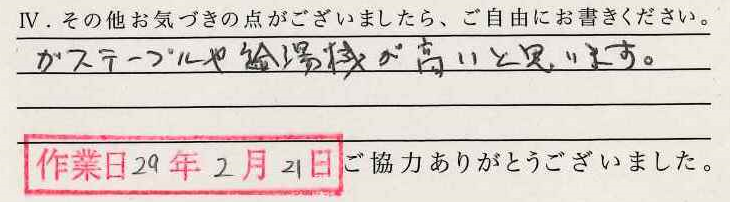 Ⅳ．その他お気づきの点がございましたら、ご自由にお書きください。
ガステーブルや給湯機が高いと思います。
作業日29年2月21日ご協力ありがとうございました。